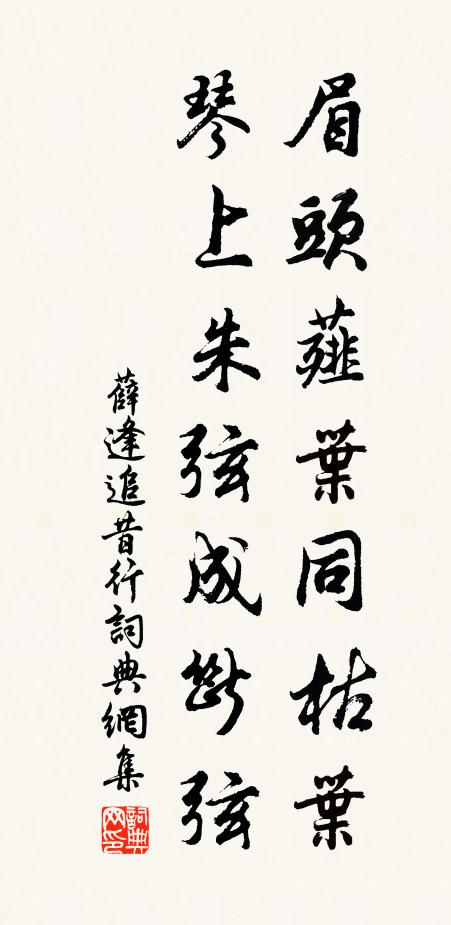 眉頭薤葉同枯葉
琴上朱弦成斷弦
薛逢追昔行詞典網集
詞典网印